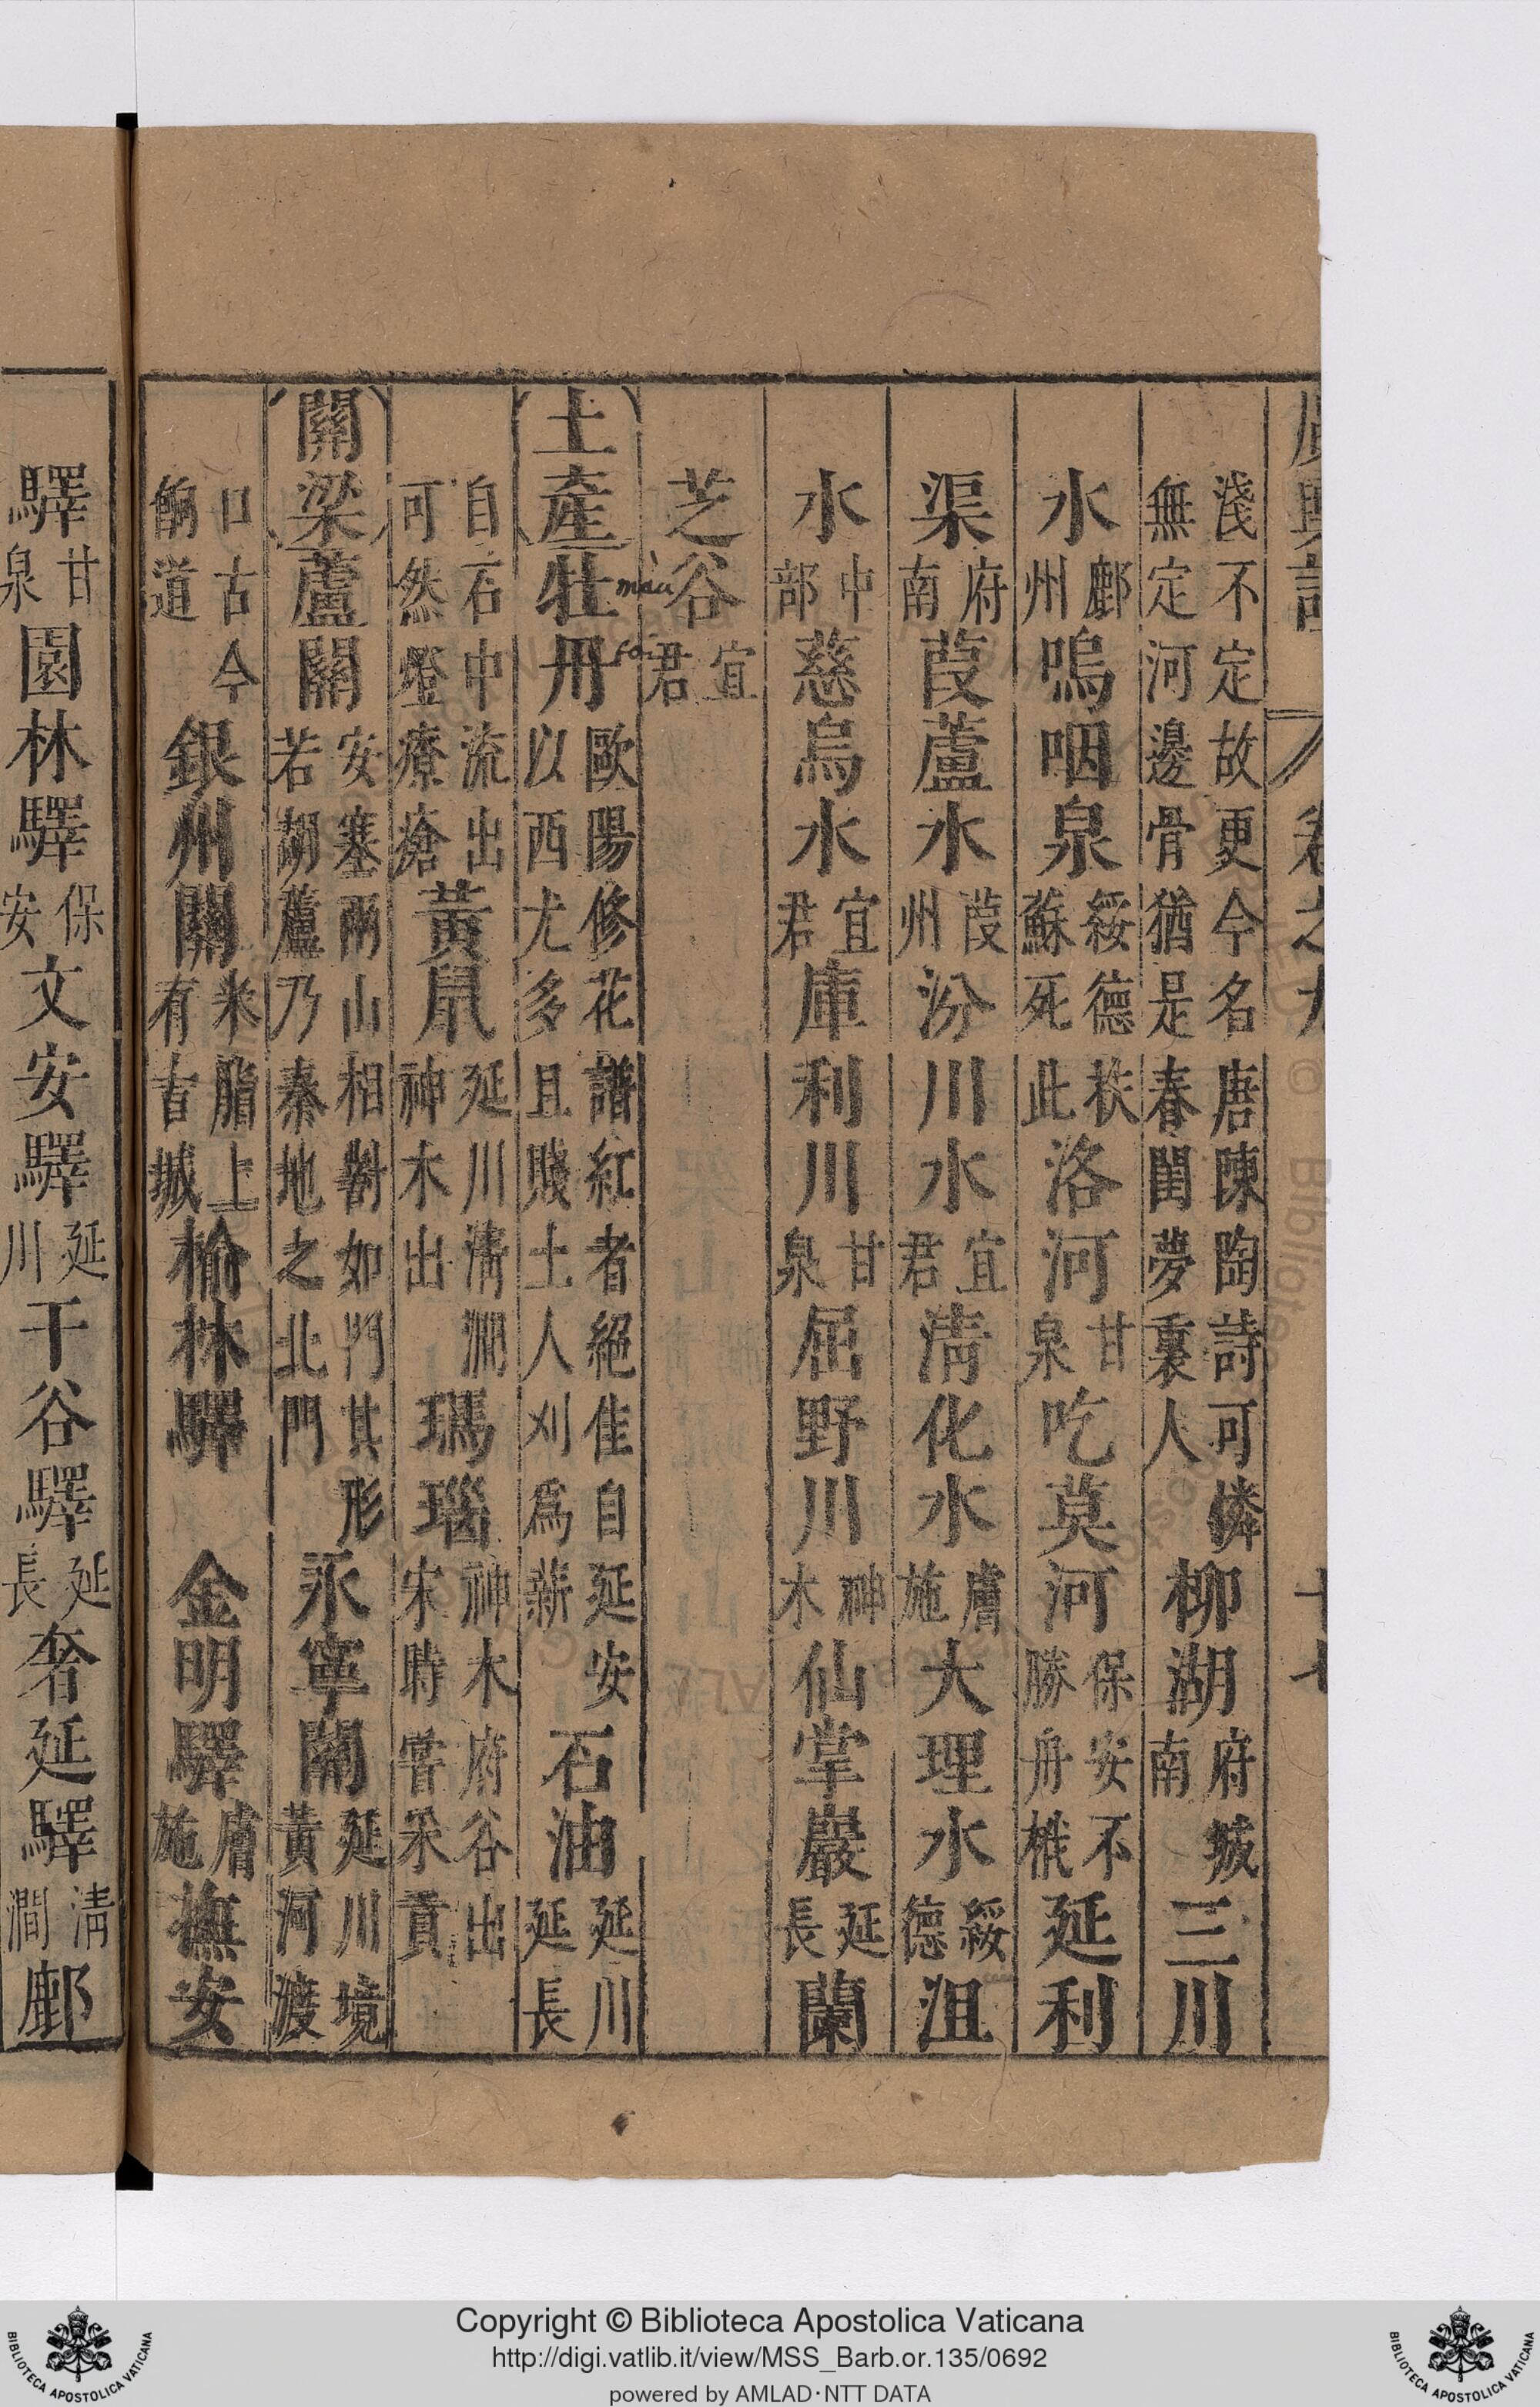 廣輿記 卷之九 十七
淺不定故更今名唐陳陶詩可憐無定河邊骨猶是春閨夢裏人柳湖府城南三川
水鄜州嗚咽泉綏德扶蘇死此洛河甘泉吃莫河保安不勝舟栰延利
渠府南葭蘆水葭州汾川水宜君清化水膚施大理水綏德沮
水中部慈烏水宜君庫利川甘泉屈野川神木仙掌巖延長蘭
芝谷宜君
土產牡丹歐陽修花譜紅者絕佳自延安以西尤多且賤土人刈爲薪石油延川延長
mau
自石中流出可然燈療瘡黃鼠延川清澗神木出瑪瑙神木府谷出宋時嘗釆貢
關梁蘆關安塞兩山相對如門其形若葫蘆乃秦地之北門永寧關延川境黃河渡
口古今餉道銀州關米脂上有古城榆林驛 金明驛膚施撫安
驛甘泉園林驛保安文安驛延川干谷驛延長奢延驛清澗鄜
Copyright © Biblioteca Apostolica Vaticana
http://digi.vatlib.it/view/MSS_Barb.or.135/0692
powered by AMLAD·NTT DATA
BIBLIOTECA APOSTOLICA VATICANA
BIBLIOTECA APOSTOLICA VATICANA